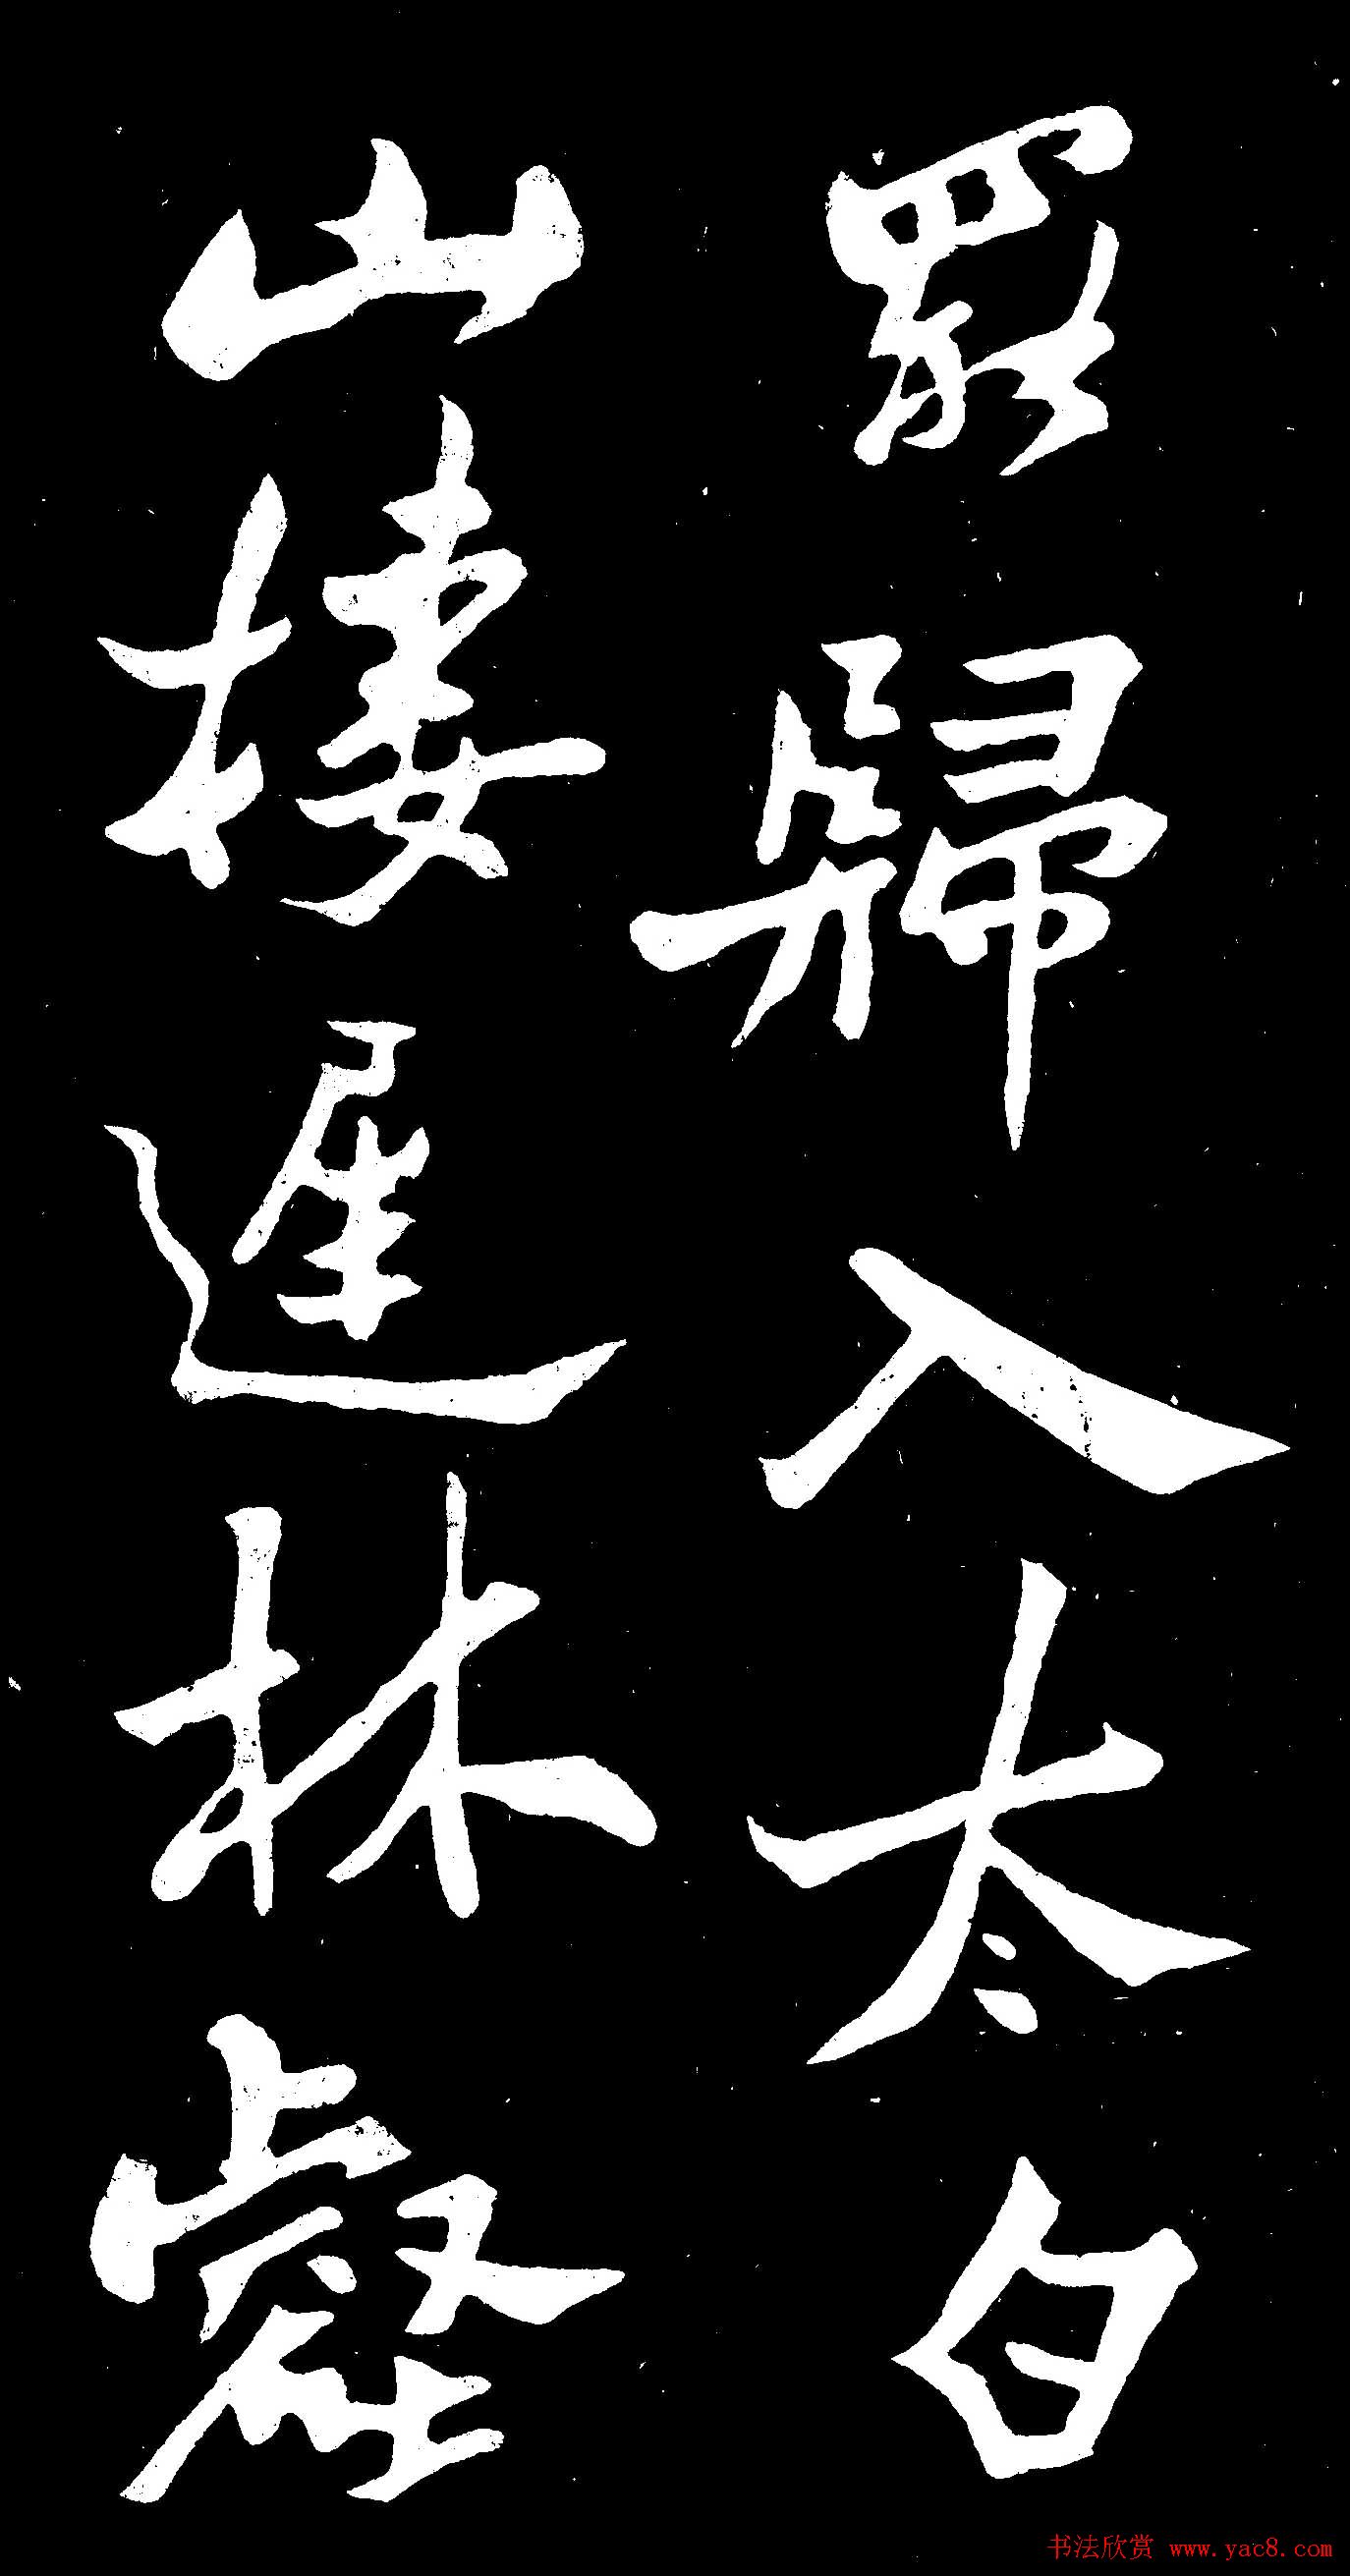 罷歸入太白
山棲遲林壑
书法欣赏 www.yac8.com